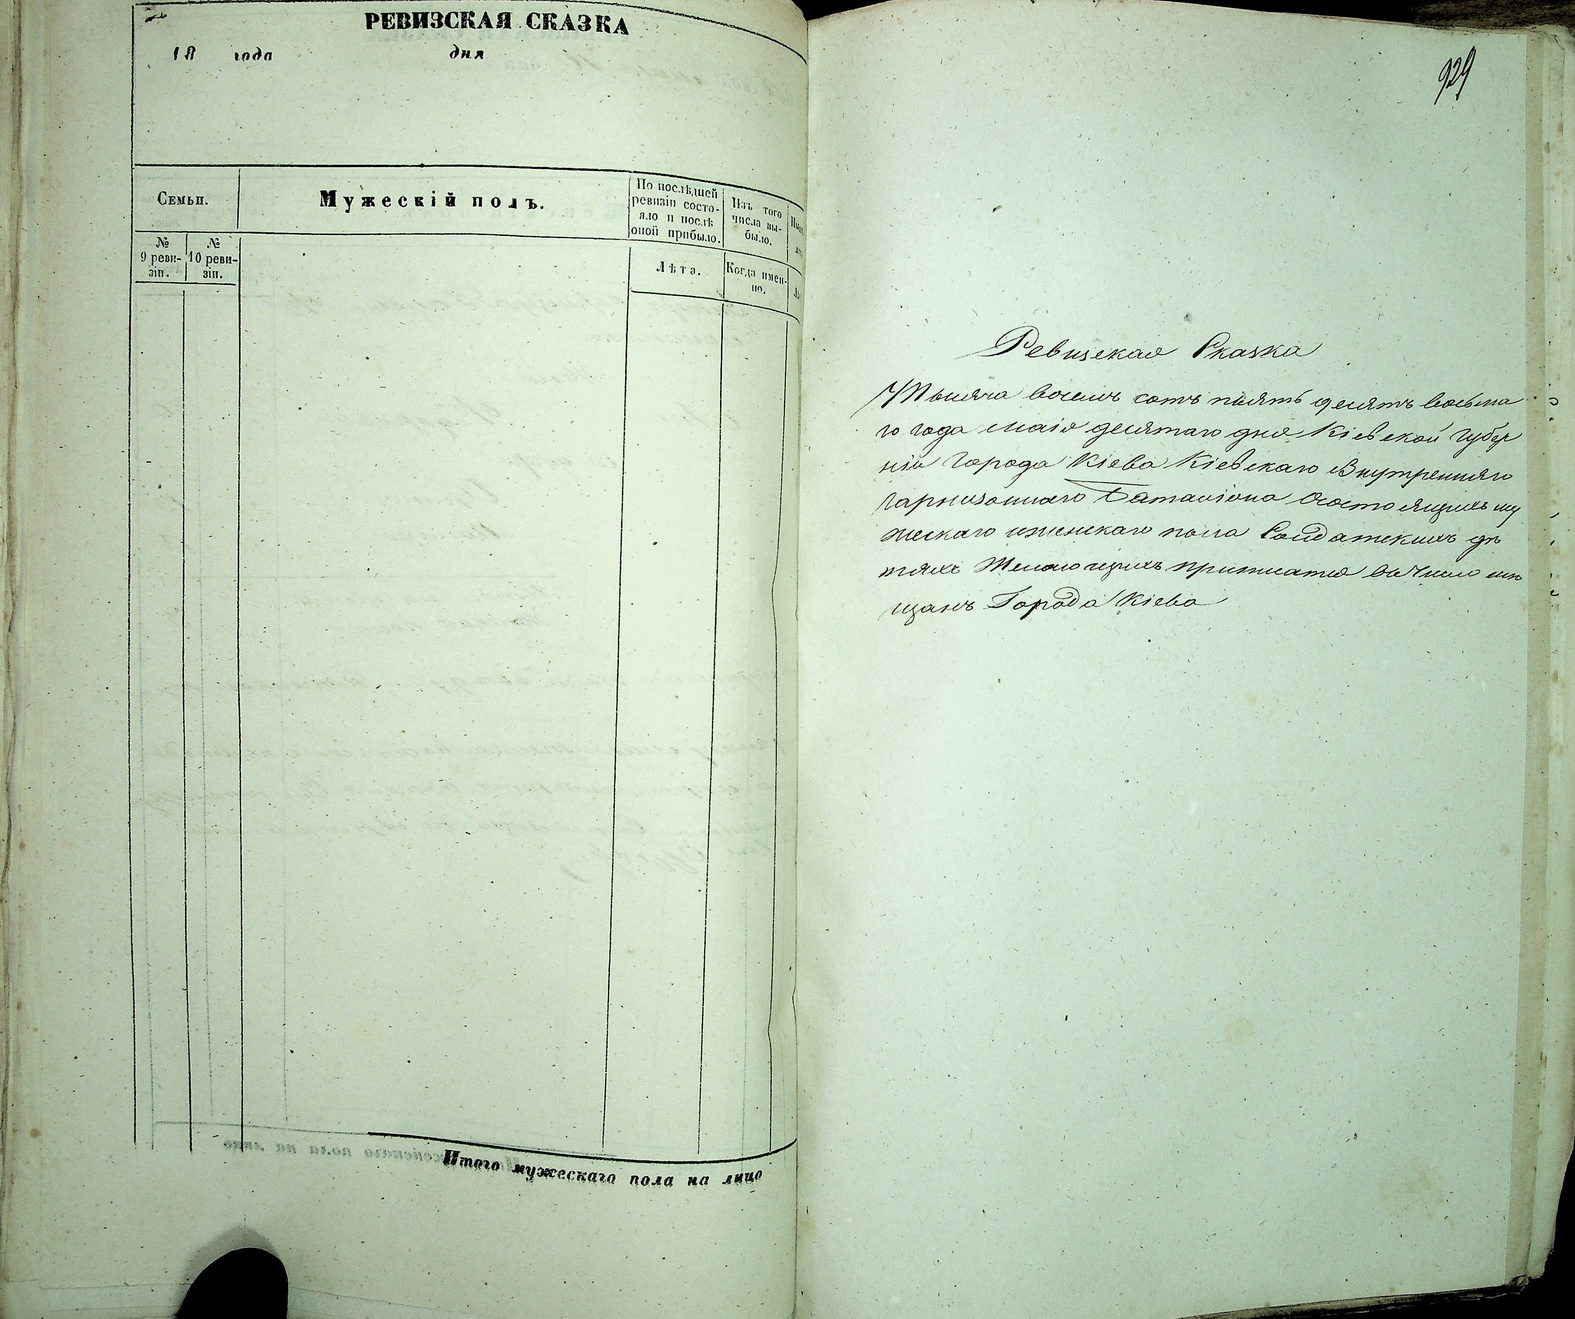 РЕВИЗСКАЯ СКАЗКА
18 года дня
Семьи.
Мужескій полъ.
По послѣдней
ревизіи состо-
яло и послѣ
оной прибыло.
Изъ того
числа вы-
было.
№
9 реви-
зіи.
№
10 реви-
зіи.
Лѣта.
Когда имен-
но.
Итого мужескаго пола на лицо
929
Ревизская Сказка
Тысяча восемь сотъ пять десятъ восьма
го года маія десятаго дня Кіевской Губер
ніи Города Кіева Кіевскаго Внутренняго
гарнизоннаго Баталіона Состоящихъ му
жескаго иженскаго пола Солдатскихъ дѣ
тяхъ Желающихъ приписатся въ Число мѣ
щанъ Города Кіева